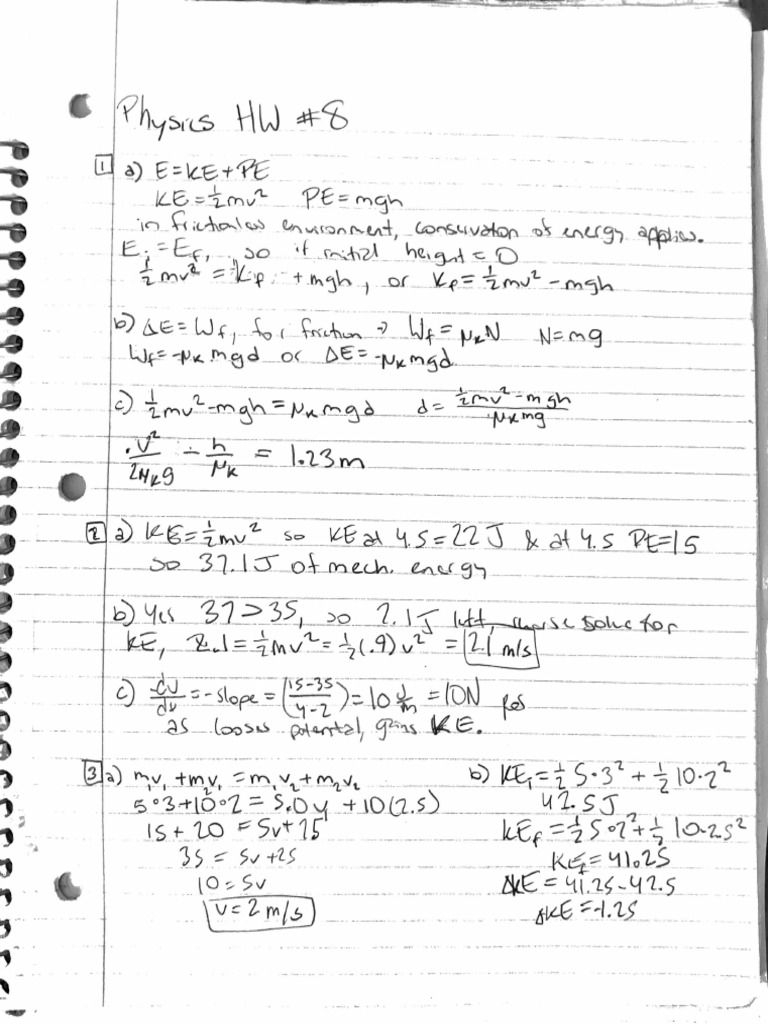 Physics HW #8
1 a) E=KE+PE
KE=½mv² PE=mgh
in frictionless environment, conservation of energy applies.
E_i=E_f, so if initial height=0
½mv²=K_f+mgh, or K_f=½mv²-mgh
b) ΔE=W_f, for friction → W_f=μ_kN N=mg
W_f=-μ_k mgd or ΔE=-μ_k mgd
c) ½mv²-mgh=μ_k mgd d=(½mv²-mgh)/(μ_k mg)
v²/(2μ_k g) - h/μ_k = 1.23m
2 a) KE=½mv² so KE at 4.5=22J & at 4.5 PE=15
so 37.1J of mech. energy
b) Yes 37>35, so 2.1J left, solve for
KE, 2.1=½mv²=½(.9)v² = 2.1 m/s
c) du/dx=-slope=(15-35/4-2)=10 J/m=10N pos
as looses potential, gains KE.
3 a) m₁v₁+mv₁=m₁v₂+m₂v₂
5·3+10·2=5.0v+10(2.5)
15+20=5v+25
35=5v+25
10=5v
v=2m/s
b) KE₁=½5·3²+½10·2²
42.5J
KE_f=½5·2²+½10·2.5²
KE_f=41.25
ΔKE=41.25-42.5
ΔKE=-1.25